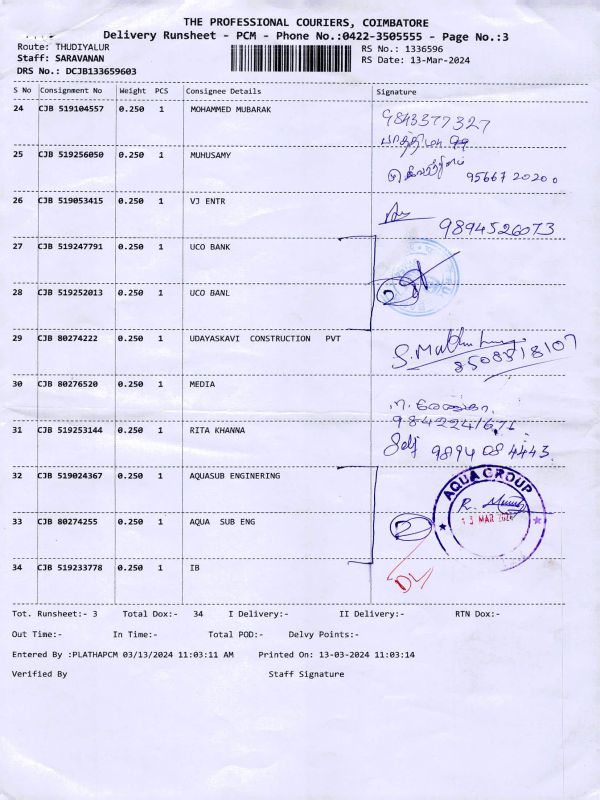 THE PROFESSIONAL COURIERS, COIMBATORE
Delivery Runsheet - PCM - Phone No.:0422-3505555 - Page No.:3
Route: THUDIYALUR RS No.: 1336596
Staff: SARAVANAN RS Date: 13-Mar-2024
DRS No.: DCJB133659603
S No Consignment No Weight PCS Consignee Details Signature
24 CJB 519104557 0.250 1 MOHAMMED MUBARAK 9843377327
25 CJB 519256050 0.250 1 MUHUSAMY 95667 20200
26 CJB 519053415 0.250 1 VJ ENTR 9894526073
27 CJB 519247791 0.250 1 UCO BANK
28 CJB 519252013 0.250 1 UCO BANL 2
29 CJB 80274222 0.250 1 UDAYASKAVI CONSTRUCTION PVT 8508518107
30 CJB 80276520 0.250 1 MEDIA
31 CJB 519253144 0.250 1 RITA KHANNA Self 9894 08 4443
32 CJB 519024367 0.250 1 AQUASUB ENGINERING AQUA GROUP
13 MAR 2024
33 CJB 80274255 0.250 1 AQUA SUB ENG 2
34 CJB 519233778 0.250 1 IB DL
Tot. Runsheet:- 3 Total Dox:- 34 I Delivery:- II Delivery:- RTN Dox:-
Out Time:- In Time:- Total POD:- Delvy Points:-
Entered By :PLATHAPCM 03/13/2024 11:03:11 AM Printed On: 13-03-2024 11:03:14
Verified By Staff Signature